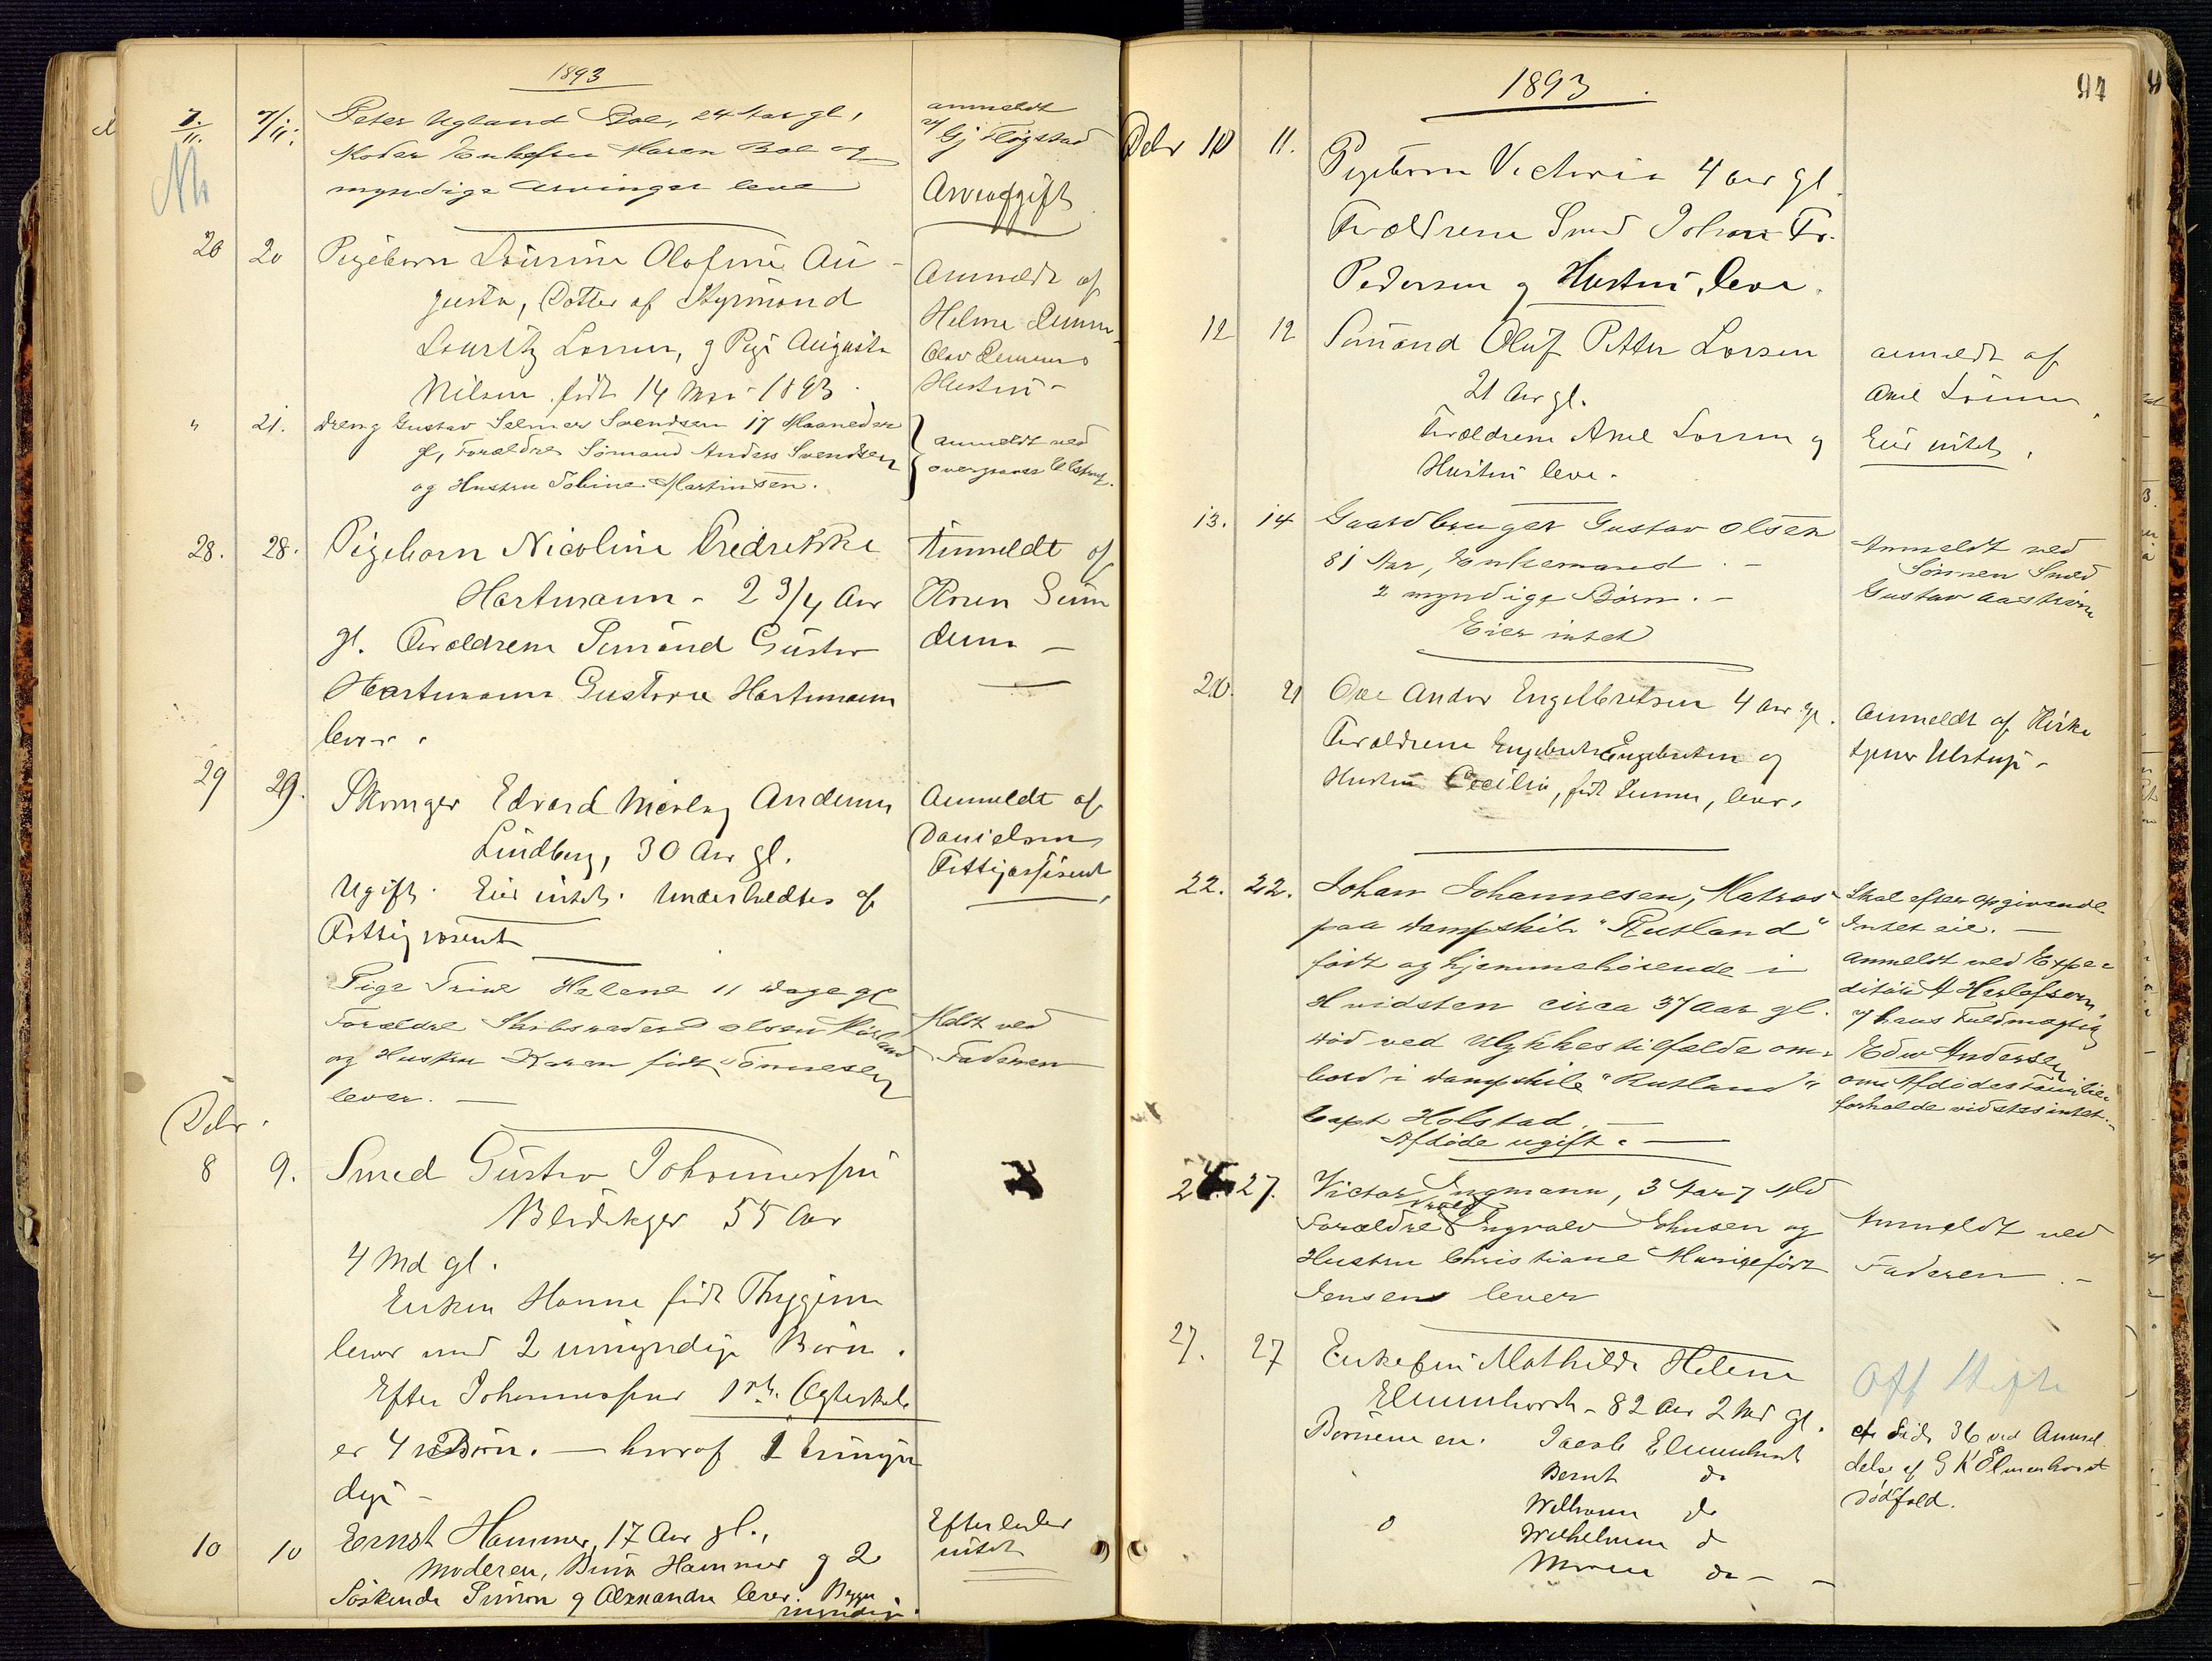 1893
7/11. 7/11. Peter Ugland Boe, 24 Aar gl,
Moder Enkefru Maren Boe og
myndige Arvinger leve
anmeldt
v/ Gj Fløgstad
Arveafgift
20 20 Pigebarn Laurine Olofine Au-
gusta, Datter af Styrmand
Lauritz Larsen, g Pige Augusta
Nilsen født 14 Mai 1893.
Anmeldt af
Helene
Olav
Hustru -
" 21. Dreng Gustav Selmer Svendsen 17 Maaneder
gl, Forældre Sømand Anders Svendsen
og Hustru Tobine Martinsen.
anmeldt ved
overgraver Ulstrup.
28. 28. Pigebarn Nicoline Fredrikke
Hartmann - 2 3/4 Aar
gl. Forældrene Sømand Gustav
Hartmann Gustava Hartmann
lever.
Anmeldt af
29 29. Edvard Nicolay Andersen
Lindberg, 30 Aar gl.
Ugift. Eier intet. Underholdtes af
Fattigvæsenet
Anmeldt af
Danielsen
Fattigvæsenet
Pige Trine Helene 11 Dage gl
Forældre Skibsreder Olsen Mørland
og Hustru Karen født Tønnesen
lever. -
Meldt ved
Faderen
Debr.
8 9. Smed Gustav Johannessen
Blødekjær 55 Aar
4 Md gl.
Enken Hanne født Thygesen
lever med 2 umyndige Børn.
Efter Johannessens 1ste Ægteskab
er 4 Børn. - hvoraf 1 umyn
dige -
10 10 Ernst Hammer, 17 Aar gl.,
Moderen, Hammer g 2
Søskende Simon g Alexandra lever. Begge
myndige.
Efterlader
intet
1893.
94
Debr 10 11. Pigebarn Victoria 4 aar gl.
Forældrene Smed Johan Fr.
Pedersen g Hustru, leve.
12 12 Sømand Oluf Petter Larsen
21 Aar gl.
Forældrene Axel Larsen g
Hustru leve.
anmeldt af
Axel Larsen
Eier intet.
13. 14 Gaardbruger Gustav Olsen
81 Aar, Enkemand. -
2 myndige Børn. -
Eier intet
Anmeldt ved
Sønnen Smed
Gustav Aastrøm
20. 21 Ove Andor Engelbretsen 4 Aar gl.
Forældrene Engebret Engebretsen og
Hustru Cecilie, født , lever.
Anmeldt af Kirke
tjener Ulstrup -
22. 22. Johan Johannesen, Matros
paa Dampskib "Rutland"
født og hjemmehørende i
Hvidsten circa 37 Aar gl.
død ved Ulykkestilfælde om-
bord i Dampskib "Rutland"
Capt Holstad. -
Afdøde ugift. -
Skal efter Opgivende
Intet eie. -
anmeldt ved Expe-
ditør A Herlofson,
v/ hans Fuldmægtig
Edw Andersen
om Afdødes Familie-
forholde vidstes intet. -
2 27. Victor Ingmann, 3 Aar 7 Md
Forældre Ingvald Johnsen og
Hustru Christiane Marie født
Jensen lever
Anmeldt ved
Faderen. -
27. 27 Enkefru Mathilde Helene
Elmenhorst - 82 Aar 2 Md gl.
Børnene er: Jacob Elmenhorst
Bernt do
do
Wilhelmine do
do -
Off Skifte
cfr Side 36 ved Anmel
delse af G K Elmenhorst
Dødfald.